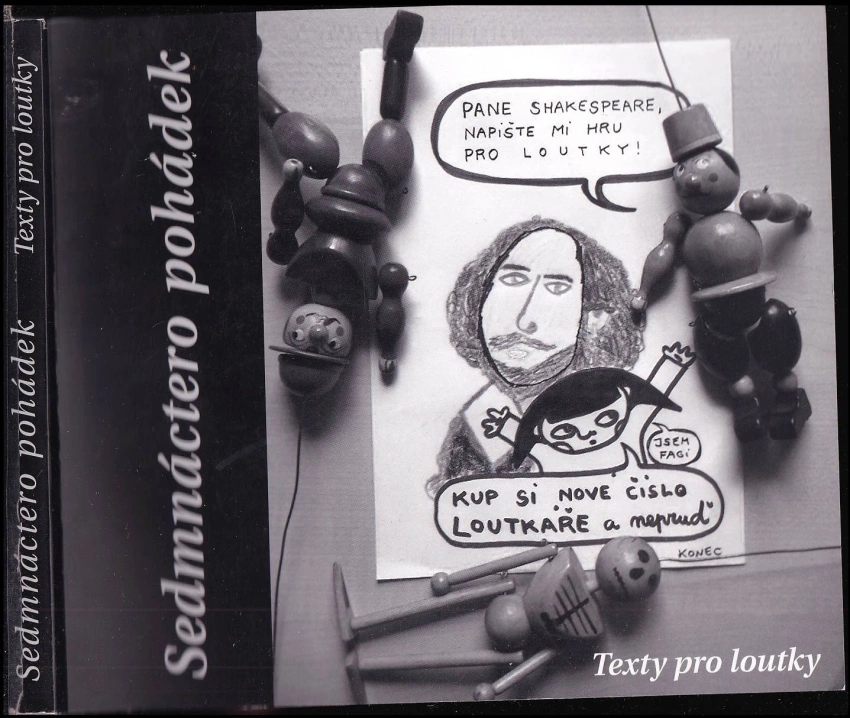 Sedmnáctero pohádek
Texty pro loutky
Sedmnáctero pohádek
PANE SHAKESPEARE,
NAPIŠTE MI HRU
PRO LOUTKY!
JSEM
FAGI
KUP SI NOVÉ ČÍSLO
LOUTKÁŘE a nepruď
KONEC
Texty pro loutky